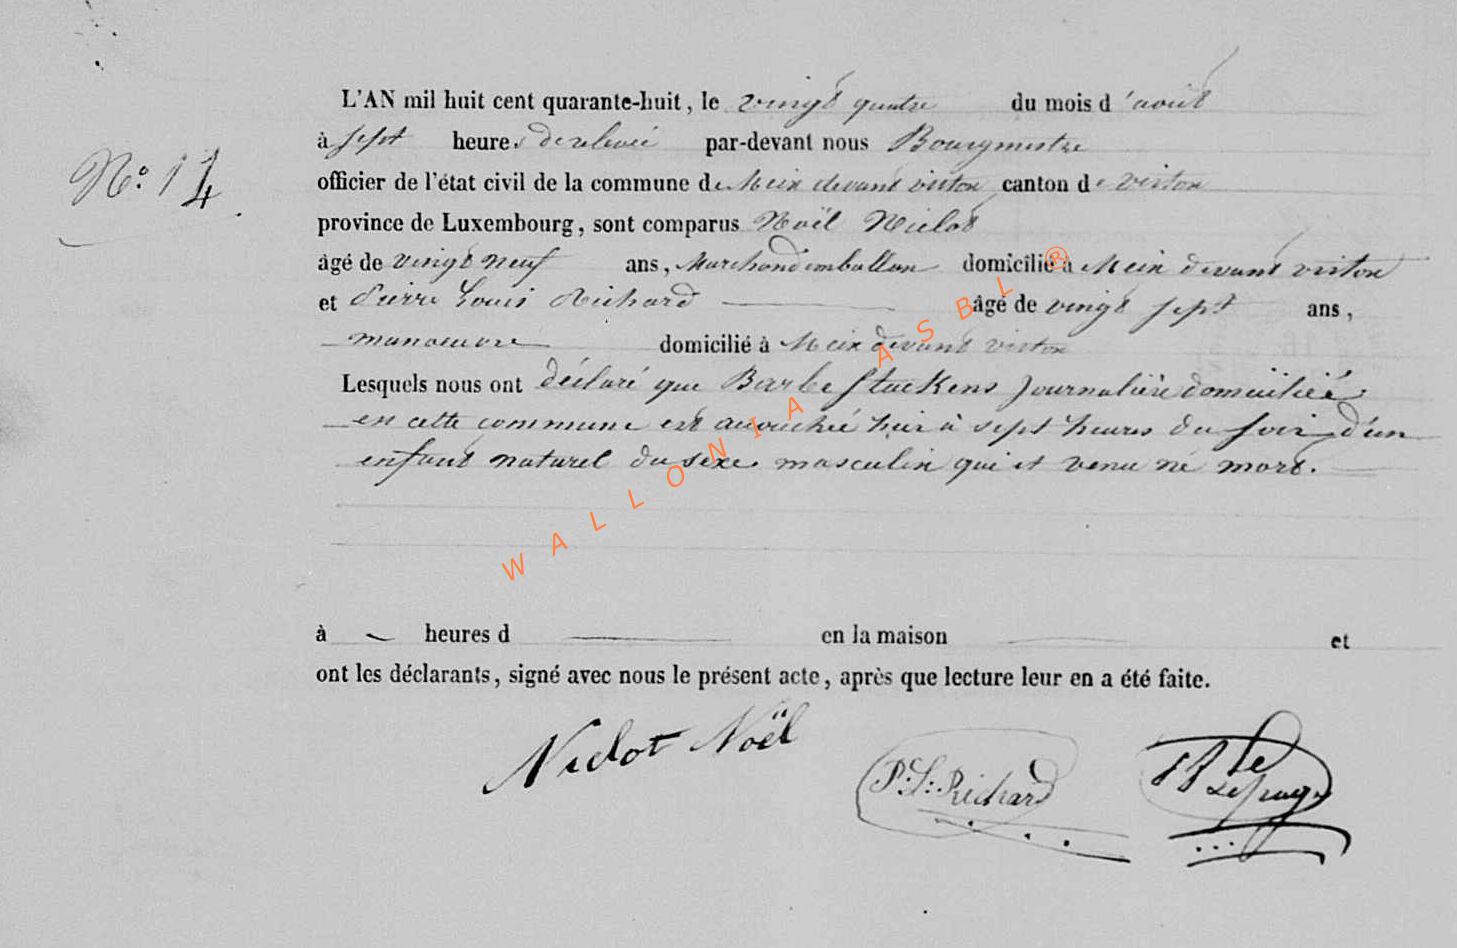 L'AN mil huit cent quarante-huit, le vingt quatre du mois d'août
à sept heures de relevée par-devant nous Bourgmestre
N.º 14
officier de l'état civil de la commune de Meix devant virton canton de virton
province de Luxembourg, sont comparus Noël Niclot
âgé de vingt neuf ans, Marchand imballon domicilié à Meix devant virton
et Pierre Louis Richard âgé de vingt sept ans,
manoeuvre domicilié à Meix devant virton
Lesquels nous ont déclaré que Barbe Stackens journalière domiciliée
en cette commune est accouchée hier à sept heures du soir d'un
enfant naturel du sexe masculin qui et venu né mort.
à heures d en la maison et
ont les déclarants, signé avec nous le présent acte, après que lecture leur en a été faite.
Niclot Noël
P: L: Richard
WALLONIA ASBL ®